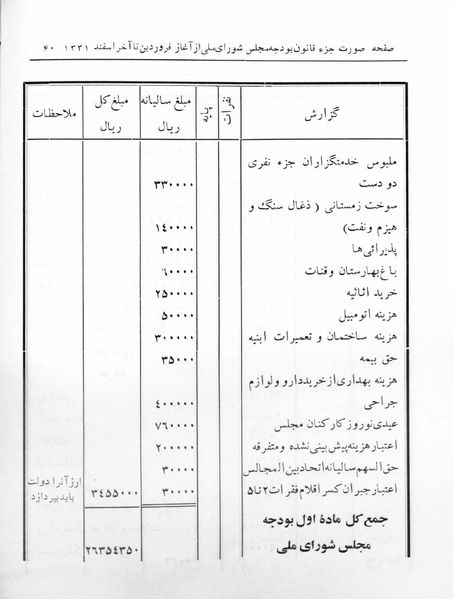 صفحه صورت جزء قانون بودجه مجلس شورای ملی از آغاز فروردین تا آخر اسفند ۱۳۳۱ ۴۰
گزارش نفرات پایه مبلغ سالیانه ریال مبلغ کل ریال ملاحظات
ملبوس خدمتگزاران جزء نفری
دو دست ۳۳۰۰۰۰
سوخت زمستانی ( ذغال سنگ و
هیزم و نفت) ۱۴۰۰۰۰
پذیرائی‌ها ۳۰۰۰۰
باغ بهارستان و قنات ۶۰۰۰۰
خرید اثاثیه ۲۵۰۰۰۰
هزینه اتومبیل ۵۰۰۰۰
هزینه ساختمان و تعمیرات ابنیه ۳۰۰۰۰۰
حق بیمه ۳۵۰۰۰
هزینه بهداری از خرید دارو و لوازم
جراحی ۴۰۰۰۰۰
عیدی نوروز کارکنان مجلس ۷۶۰۰۰۰
اعتبار هزینه پیش بینی نشده و متفرقه ۲۰۰۰۰۰
حق السهم سالیانه اتحاد بین المجالس ۳۰۰۰۰ ارز آنرا دولت
اعتبار جبران کسر اقلام فقرات ۲ تا ۵ ۳۰۰۰۰ ۳۴۵۵۰۰۰ باید بپردازد
جمع کل مادهٔ اول بودجه
مجلس شورای ملی ۲۶۳۵۴۳۵۰